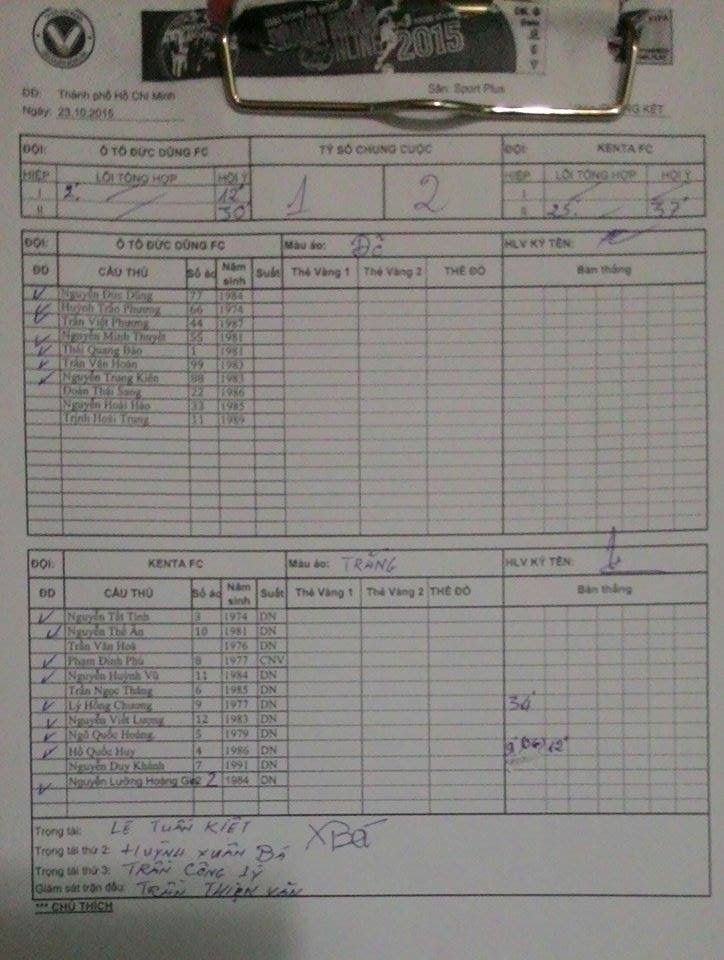 2015
ĐĐ: Thành phố Hồ Chí Minh Sân: Sport Plus
Ngày: 23.10.2015 KẾT
ĐỘI: Ô TÔ ĐỨC DŨNG FC TỶ SỐ CHUNG CUỘC ĐỘI: KENTA FC
HIỆP LỖI TỔNG HỢP HỘI Ý HIỆP LỖI TỔNG HỢP HỘI Ý
I 2' 12' 1 2 I
II 30' II 25' 37'
ĐỘI: Ô TÔ ĐỨC DŨNG FC Màu áo: Đỏ HLV KÝ TÊN:
ĐD CẦU THỦ Số áo Năm sinh Suất Thẻ Vàng 1 Thẻ Vàng 2 THẺ ĐỎ Bàn thắng
Nguyễn Đức Dũng 77 1984
Huỳnh Trần Phương 66 1974
Trần Việt Phương 44 1987
Nguyễn Minh Thuyết 55 1981
Thái Quang Bảo 1 1981
Trần Văn Hoàn 99 1983
Nguyễn Trung Kiên 88 1983
Đoàn Thái Sang 22 1986
Nguyễn Hoài Hảo 33 1985
Trịnh Hoài Trung 11 1989
ĐỘI: KENTA FC Màu áo: TRẮNG HLV KÝ TÊN:
ĐD CẦU THỦ Số áo Năm sinh Suất Thẻ Vàng 1 Thẻ Vàng 2 THẺ ĐỎ Bàn thắng
Nguyễn Tốt Tính 3 1974 DN
Nguyễn Thế Ân 10 1981 DN
Trần Văn Hoà 1976 DN
Phạm Đình Phú 8 1977 CNV
Nguyễn Huỳnh Vũ 11 1984 DN
Trần Ngọc Thăng 6 1985 DN
Lý Hồng Chương 9 1977 DN 34'
Nguyễn Viết Lượng 12 1983 DN
Ngô Quốc Hoàng 5 1979 DN
Hồ Quốc Huy 4 1986 DN 9' (OG) 12'
Nguyễn Duy Khánh 7 1991 DN
Nguyễn Lưỡng Hoàng Gi 2 1984 DN
Trọng tài: LÊ TUẤN KIỆT
Trọng tài thứ 2: HUỲNH XUÂN BÁ XBá
Trọng tài thứ 3: TRẦN CÔNG LÝ
Giám sát trận đấu: TRẦN THIỆN VĂN
*** CHÚ THÍCH